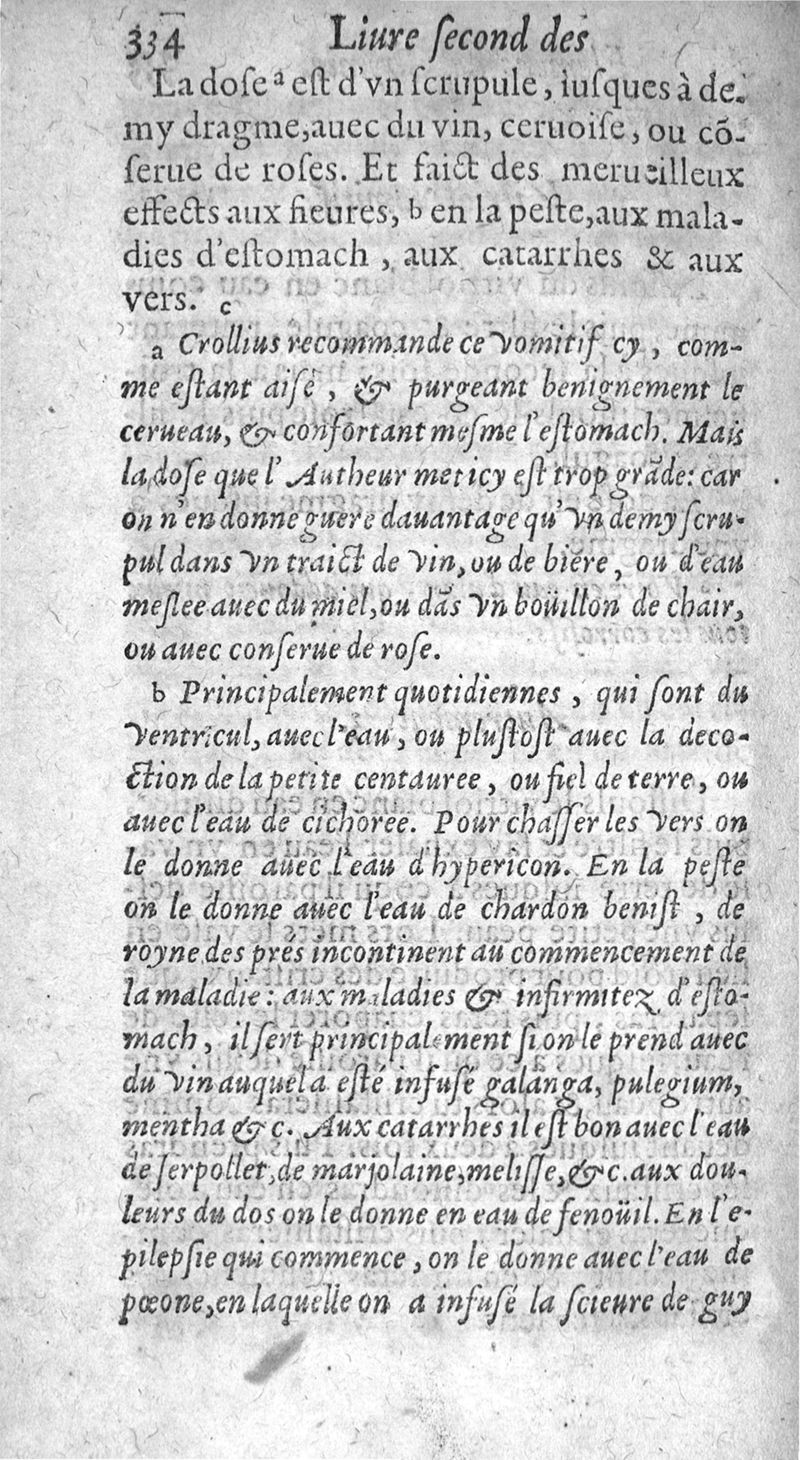 334 Liure ſecond des
La doſe a eſt d'vn ſcrupule, iuſques à de-
my dragme, auec du vin, ceruoiſe, ou cõ-
ſerue de roſes. Et faict des merueilleux
effects aux fieures, b en la peſte, aux mala-
dies d'eſtomach, aux catarrhes & aux
vers. c
a Crollius recommande ce vomitif cy, com-
me eſtant aiſé, & purgeant benignement le
cerueau, & confortant meſme l'eſtomach. Mais
la doſe que l'Autheur met icy eſt trop grãde: car
on n'en donne guere dauantage qu'vn demy ſcru-
pul dans vn traict de vin, ou de biére, ou d'eau
meſlee auec du miel, ou dãs vn boüillon de chair,
ou auec conſerue de roſe.
b Principalement quotidiennes, qui ſont du
ventricul, auec l'eau, ou pluſtoſt auec la deco-
ction de la petite centauree, ou fiel de terre, ou
auec l'eau de cichorée. Pour chaſſer les vers on
le donne auec l'eau d'hypericon. En la peſte
on le donne auec l'eau de chardon beniſt, de
royne des prés incontinent au commencement de
la maladie: aux maladies & infirmitez d'eſto-
mach, il ſert principalement ſi on le prend auec
du vin auquel a eſté infuſé galanga, pulegium,
mentha & c. Aux catarrhes il eſt bon auec l'eau
de ſerpollet, de marjolaine, meliſſe, & c. aux dou-
leurs du dos on le donne en eau de fenoüil. En l'e-
pilepſie qui commence, on le donne auec l'eau de
pœone, en laquelle on a infuſé la ſcieure de guy